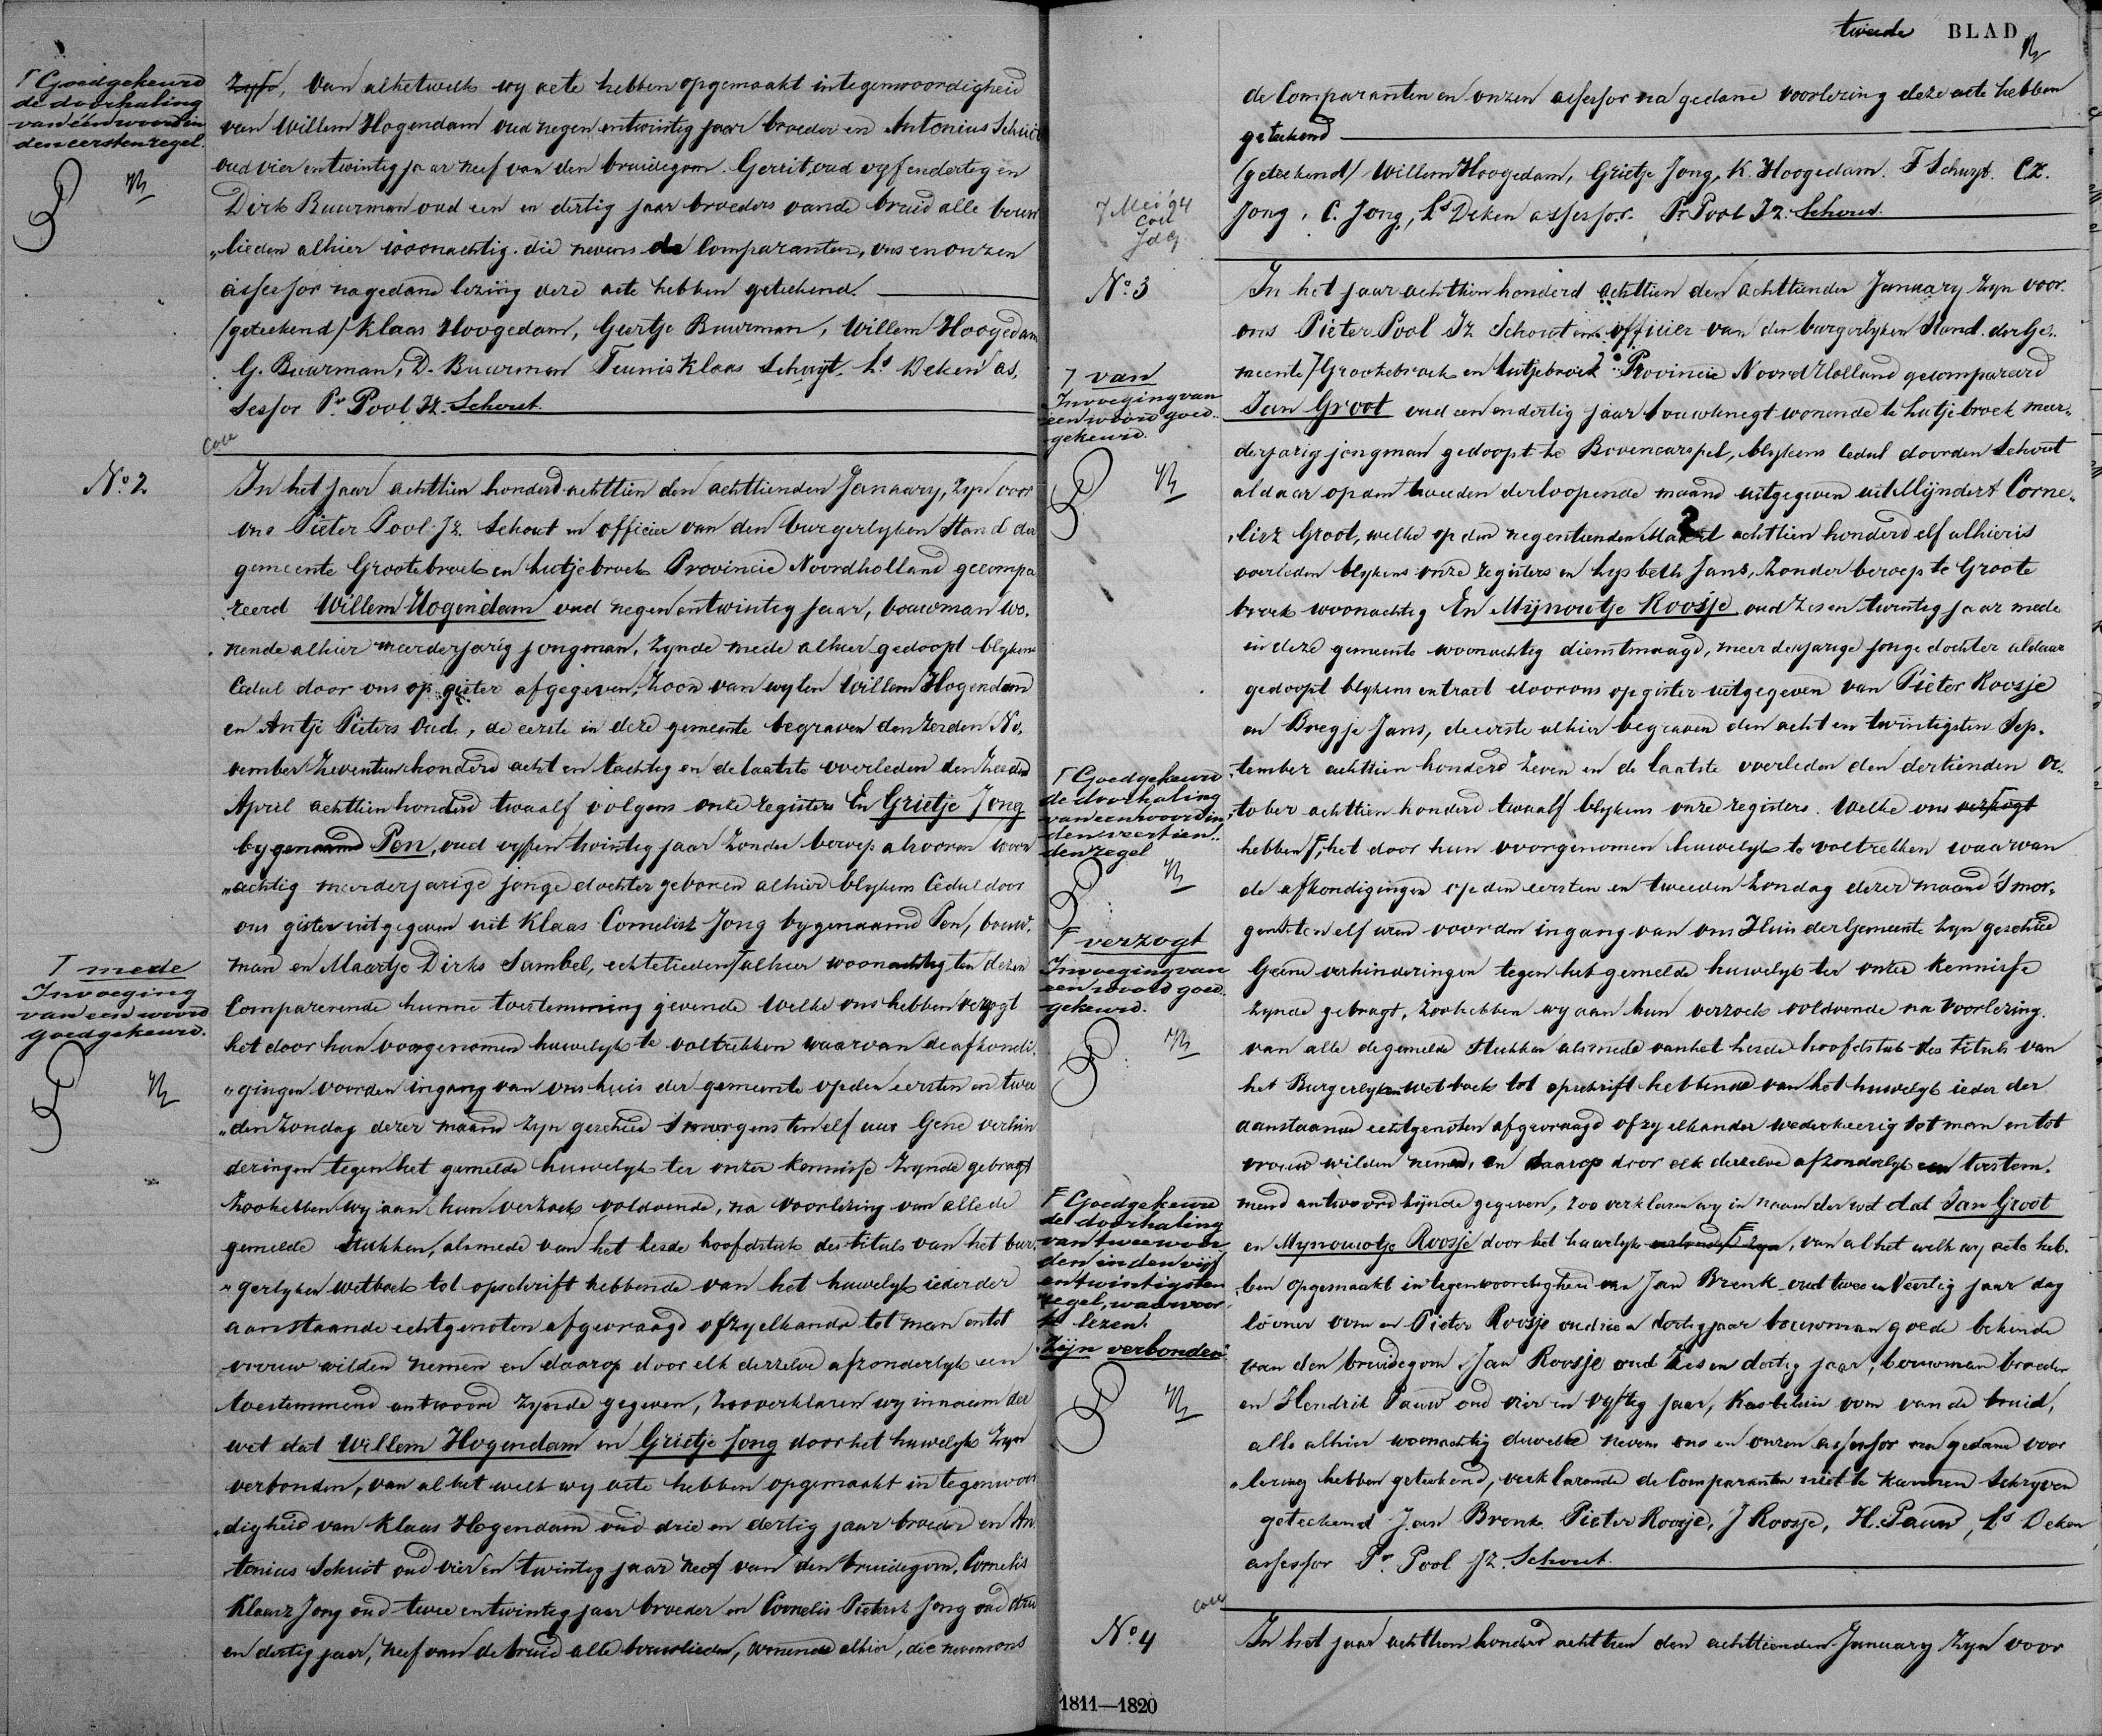 Γ Goedgekeurd
de doorhaling
van één woord in
den eersten regel.
zyfs, van alhetwelk wy acte hebben opgemaakt in tegenwoordigheid
van Willem Hogendam oud negen entwintig jaar broeder en Antonius Schuit
oud vier entwintig jaar neef van den bruidegom. Gerrit, oud vyf endertig en
Dirk Buurman oud een en dertig jaar broeders vande bruid alle bouw
„lieden alhier woonachtig. die nevens de Comparanten, ons en onzen
assessor nagedane lezing deze acte hebben geteekend.
(geteekend) Klaas Hoogedam, Geertje Buurman, Willem Hoogedam
G. Buurman, D. Buurman Teunis Klaas Schuyt, Ls Deken as,
sessor Pr Pool Jz. Schout.
Coll
No. 2
In het jaar achttien honderd achttien den achttienden January, zyn voor
ons Pieter Pool Jz. Schout en officier van den burgerlyken Stand der
gemeente Grootebroek en Lutjebroek Provincie Noordholland gecompa
reerd Willem Hogendam oud negen entwintig jaar, bouwman wo.
nende alhier meerderjarig jongman, zynde mede alhier gedoopt blykens
Cedul door ons op gister afgegeven, Zoon van wylen Willem Hogendam
en Antje Pieters Oud, de eerste in deze gemeente begraven den zesden No,
vember Zeventien honderd acht en tachtig en de laatste overleden den tweeden
April achttien honderd twaalf volgens onze registers En Grietje Jong
bygenaamd Pen, oud vyf en twintig jaar zonder beroep alvooren woon
„achtig meerderjarige jonge dochter geboren alhier blykens Cedul door
ons gister uitgegeven uit Klaas Cornelisz Jong bygenaamd Pen, bouw.
man en Maartje Dirks Sambel, echtelieden Γ alhier woonachtig ten dezen
Γ mede
Invoeging
van een woord
goedgekeurd.
Comparerende hunne toestemming gevende Welke ons hebben verzogt
het door hun voorgenomen huwelyk te voltrekken waarvan de afkondi.
„gingen voor den ingang van ons huis der gemeente op den eersten en twee
„den Zondag dezer maand zyn geschied 's morgens ten elf uur Gene verhin
deringen tegen het gemelde huwelyk ter onzer kennisse zynde gebragt
zoo hebben wy aan hun verzoek voldoende, na voorlezing van alle de
gemelde Stukken, alsmede van het zesde hoofdstuk des tituls van het bur.
„gerlyken wetboek tot opschrift hebbende van het huwelyk ieder der
aanstaande echtgenoten afgevraagd of zy elkander tot man en tot
vrouw wilden nemen en daarop door elk derzelve afzonderlyk een
toestemmend antwoord zynde gegeven, zoo verklaren wy in naam der
wet dat Willem Hogendam en Grietje Jong door het huwelyk zyn
verbonden, van al het welk wy acte hebben opgemaakt in tegenwoor
„digheid van Klaas Hogendam oud drie en dertig jaar broeder en An
tonius Schuit oud vier en twintig jaar neef van den bruidegom, Cornelis
Klaasz Jong oud twee entwintig jaar broeder en Cornelis Pietersz Jong oud drie
en dertig jaar, neef van de bruid alle bouwlieden, wonende alhier, die nevens ons
tweede BLAD
de Comparanten en onzen assessor na gedane voorlezing deze acte hebben
geteekend
(geteekend) Willem Hoogedam, Grietje Jong, K. Hoogedam. T Schuyt. Cz.
Jong, C. Jong, Ls Deken assessor. Pr Pool Jz. Schout.
7 Mei '94
Coll
JdG
No. 3
In het jaar achttien honderd achttien den achttienden January zyn voor
ons Pieter Pool Jz Schout en officier van den burgerlyken Stand der Ge.
meente Γ Grootebroek en Lutjebroek Provincie Noord Holland gecompareerd
Γ van
Invoeging van
een woord goed..
gekeurd.
Jan Groot oud een en dertig jaar bouwknegt wonende te Lutjebroek meer„
derjarig jongman gedoopt te Bovencarspel, blykens Cedul door den Schout
aldaar op den tweeden der loopende maand uitgegeven uit Mijndert Corne„
„lisz Groot, welke op den negentienden Maart achttien honderd elf alhier is
overleden blykens onze registers en Lysbeth Jans, zonder beroep te Groote
broek woonachtig En Mijnoutje Roosje oud zes en twintig jaar mede
in deze gemeente woonachtig dienstmaagd, meerderjarige jonge dochter aldaar
gedoopt blykens extract door ons op gister uitgegeven van Pieter Roosje
en Bregje Jans, de eerste alhier begraven den acht en twintigsten Sep„
tember achttien honderd Zeven en de laatste overleden den dertienden Oc„
tober achttien honderd twaalf blykens onze registers. Welke ons verzogt
Γ Goedgekeurd
de doorhaling
van een woord in
den veertien..
den regel
hebben F, het door hun voorgenomen huwelyk te voltrekken waarvan
de afkondigingen op den eersten en tweeden Zondag dezer maand 's mor„
gens ten elf uren voor den ingang van ons Huis der Gemeente zyn geschied
F verzogt
Invoeging van
een woord goed.
gekeurd.
Geene verhinderingen tegen het gemelde huwelyk ter onzer kennisse
zynde gebragt, zoo hebben wy aan hun verzoek voldoende na voorlezing.
van alle de gemelde Stukken alsmede van het zesde hoofdstuk des tituls van
het Burgerlyken wetboek tot opschrift hebbende van het huwelyk ieder der
aanstaande echtgenoten afgevraagd of zy elkander wederkeerig tot man en tot
vrouw wilden nemen, en daarop door elk derzelve afzonderlyk een toestem„
mend antwoord zijnde gegeven, zoo verklaren wy in naam der wet dat Jan Groot
en Mynoutje Roosje door het huwelyk verbonden zyn, van al het welk wy acte heb.
F Goedgekeurd
de doorhaling
van twee woor
den in den vijf
entwintigsten
regel, waarvoor
te lezen.
zijn verbonden
ben opgemaakt in tegenwoordigheid van Jan Brenk oud twee en Veertig jaar dag
looner oom en Pieter Roosje oud drie en dertig jaar bouwman goede bekende
van den bruidegom, Jan Roosje oud Zes en dertig jaar, bouwman broeder
en Hendrik Pauw oud vier en vyftig jaar, Kastelein oom van de bruid,
alle alhier woonachtig dewelke nevens ons en onzen assessor na gedane voor
„lezing hebben geteekend, verklarende de Comparanten niet te kunnen Schryven
geteekend Jan Brenk Pieter Roosje, J Roosje, H. Pauw, Ls Deken
assessor Pr. Pool Jz. Schout.
Coll
No. 4
In het jaar achttien honderd achttien den achttienden January zyn voor
1811—1820